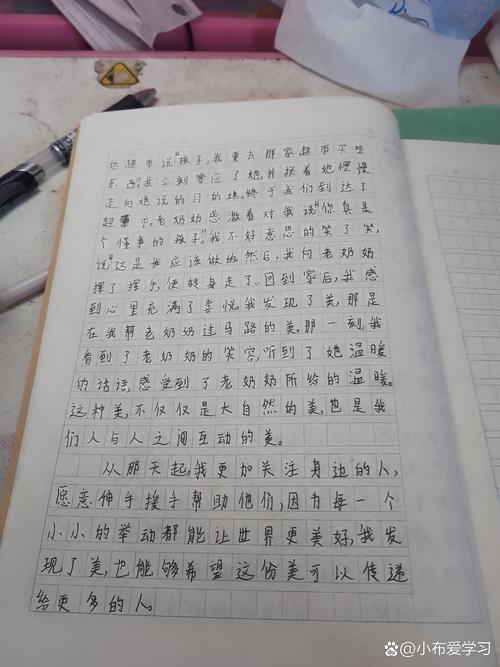 的超市说"孩子,我要去那家超市买些
东西"我立刻答应了她,并扶着她慢慢
走向她说的目的地。终于我们到达了
超市。老奶奶感激着对我说"你真是
个懂事的孩子。"我不好意思的笑了笑,
说"这是我应该做的然后,我向老奶奶
摆了摆手,便转身走了。回到家后,我感
到心里充满了喜悦,我发现了美,那是
在我帮老奶奶过马路的美。那一刻,我
看到了老奶奶的笑容,听到了她温暖
的话语,感觉到了老奶奶所给的温暖。
这种美,不仅仅是大自然的美,也是我
们人与人之间互动的美。
从那天起,我更加关注身边的人,
愿意伸手援手帮助他们,因为每一个
小小的举动都能让世界更美好,我发
现了美,也能够希望这份美可以传递
给更多的人。
小布爱学习